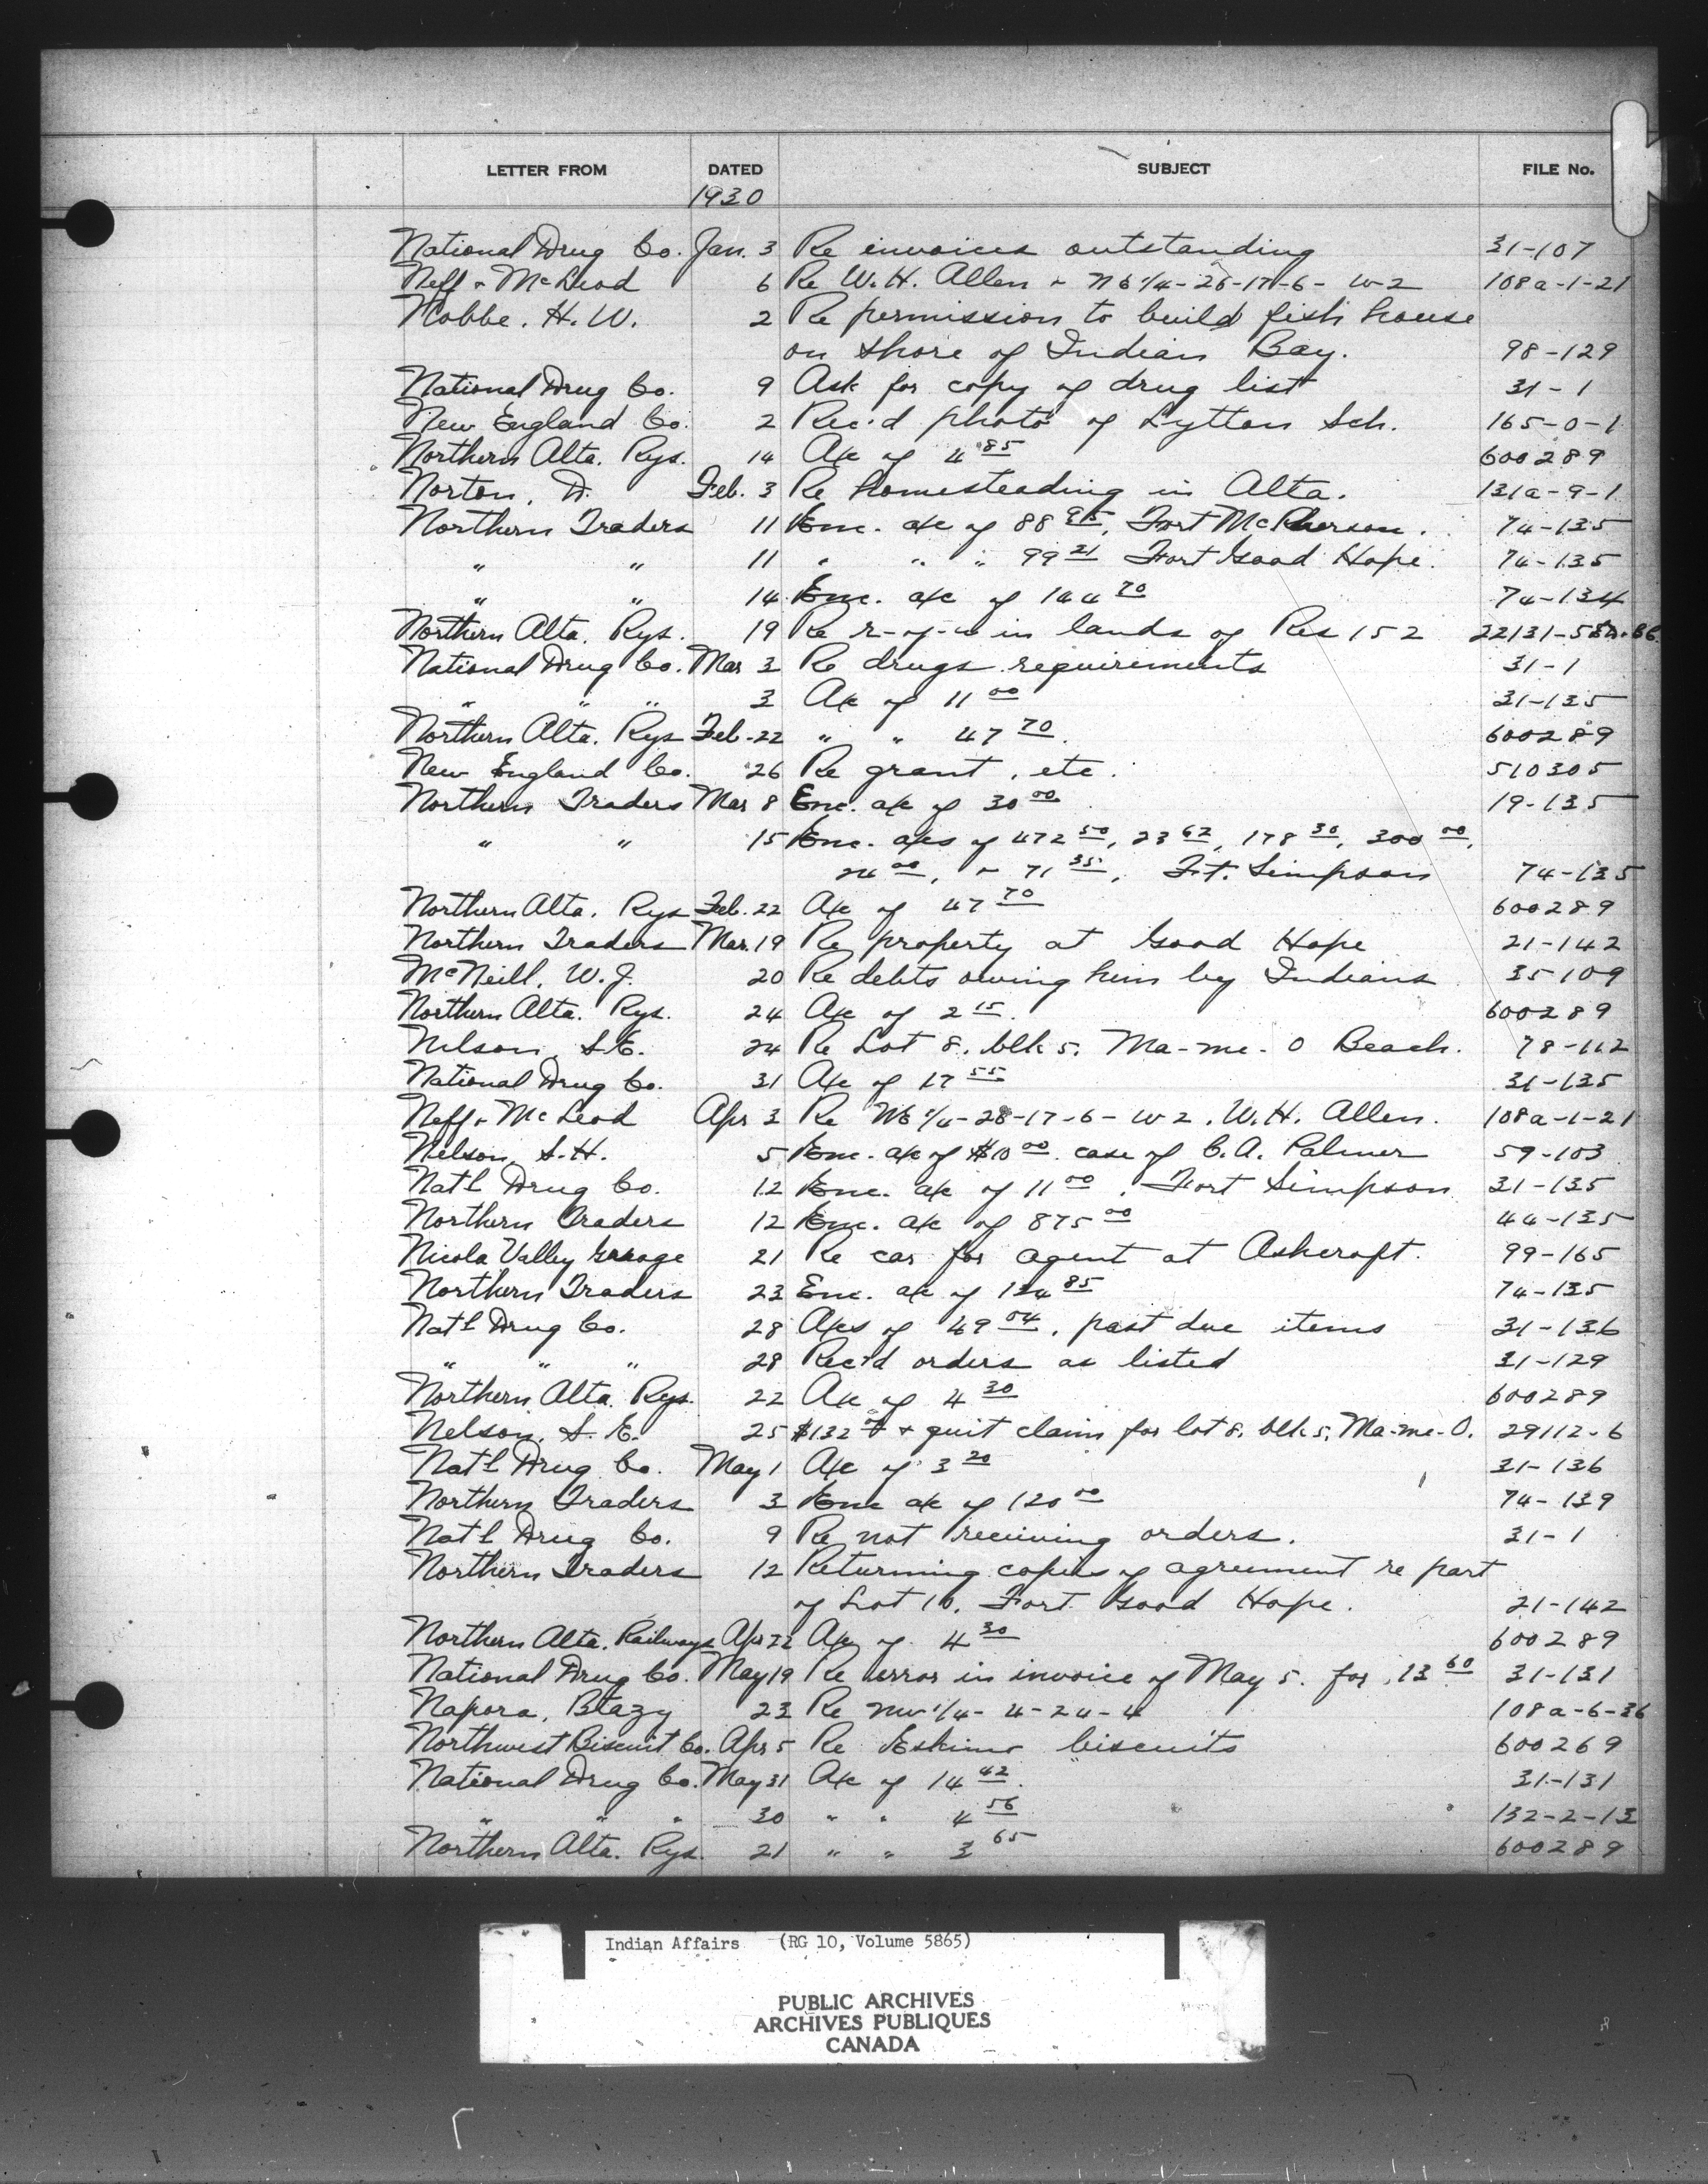 LETTER FROM DATED SUBJECT FILE No.
1930
National Drug Co. Jan. 3 Re invoices outstanding 31-107
Neff & McLeod 6 Re W. H. Allen & NE 1/4-28-17-6- W-2 108a-1-21
Nobbe. H. W. 2 Re permission to build fish house
on shore of Indian Bay. 98-129
National Drug Co. 9 Ask for copy of drug list 31-1
New England Co. 2 Rec'd photo of Lytton Sch. 165-0-1
Northern Alta. Rys. 14 A/c of 4 85 600289
Norton, D. Feb. 3 Re homesteading in Alta. 131a-9-1
Northern Traders 11 Enc. a/c of 88 95, Fort McPherson. 74-135
" " 11 " " " 99 21 Fort Good Hope. 74-135
" " 14 Enc. a/c of 144 70 74-134
Northern Alta. Rys. 19 Re r-of-w in lands of Res 152
National Drug Co. Mar 3 Re drugs requirements 31-1
" " " 3 A/c of 11 00 31-135
Northern Alta. Rys Feb-22 " " 47 70. 600289
New England Co. 26 Re grant, etc. 510305
Northern Traders Mar 8 Enc. a/c of 30 00 19-135
" " 15 Enc. a/cs of 472 50, 23 62, 178 30, 300 00,
24 00, & 71 35, Ft. Simpson 74-135
Northern Alta. Rys Feb. 22 A/c of 47 70 600289
Northern Traders Mar. 19 Re property at Good Hope 21-142
McNeill, W. J. 20 Re debts owing him by Indians 35-109
Northern Alta. Rys. 24 A/c of 2 15. 600289
Nelson, S. E. 24 Re Lot 8, blk 5, Ma-me-O Beach. 78-112
National Drug Co. 31 A/c of 17 55 31-135
Neff & McLeod Apr 3 Re NE 1/4-28-17-6-W2. W. H. Allen. 108a-1-21
Nelson, S. H. 5 Enc. a/c of $10 00 case of C. A. Palmer 59-103
Nat'l Drug Co. 12 Enc. a/c of 11 00, Fort Simpson 31-135
Northern Traders 12 Enc. a/c of 875 00 44-135
Nicola Valley Garage 21 Re car for agent at Ashcroft. 99-165
Northern Traders 23 Enc. a/c of 134 85 74-135
Nat'l Drug Co. 28 A/cs of 49 04, past due items 31-136
" " " 28 Rec'd orders as listed 31-129
Northern Alta. Rys. 22 A/c of 4 30 600289
Nelson, S. E. 25 $132 & quit claim for lot 8, blk 5, Ma-me-O. 29112-6
Nat'l Drug Co. May 1 A/c of 3 20 31-136
Northern Traders 3 Enc a/c of 120 00 74-139
Nat'l Drug Co. 9 Re not receiving orders. 31-1
Northern Traders 12 Returning copies of agreement re part
of Lot 10, Fort Good Hope. 21-142
Northern Alta. Railways Apr 22 A/c of 4 30 600289
National Drug Co. May 19 Re error in invoice of May 5. for 13 60 31-131
Napora, Blazy 23 Re NW 1/4- 4-24-4 108a-6-36
Northwest Biscuit Co. Apr 5 Re Eskimo biscuits 600269
National Drug Co. May 31 A/c of 14 42. 31-131
" " " 30 " " 4 56 132-2-13
Northern Alta. Rys. 21 " " 3 65 600289
Indian Affairs (RG 10, Volume 5865)
PUBLIC ARCHIVES
ARCHIVES PUBLIQUES
CANADA